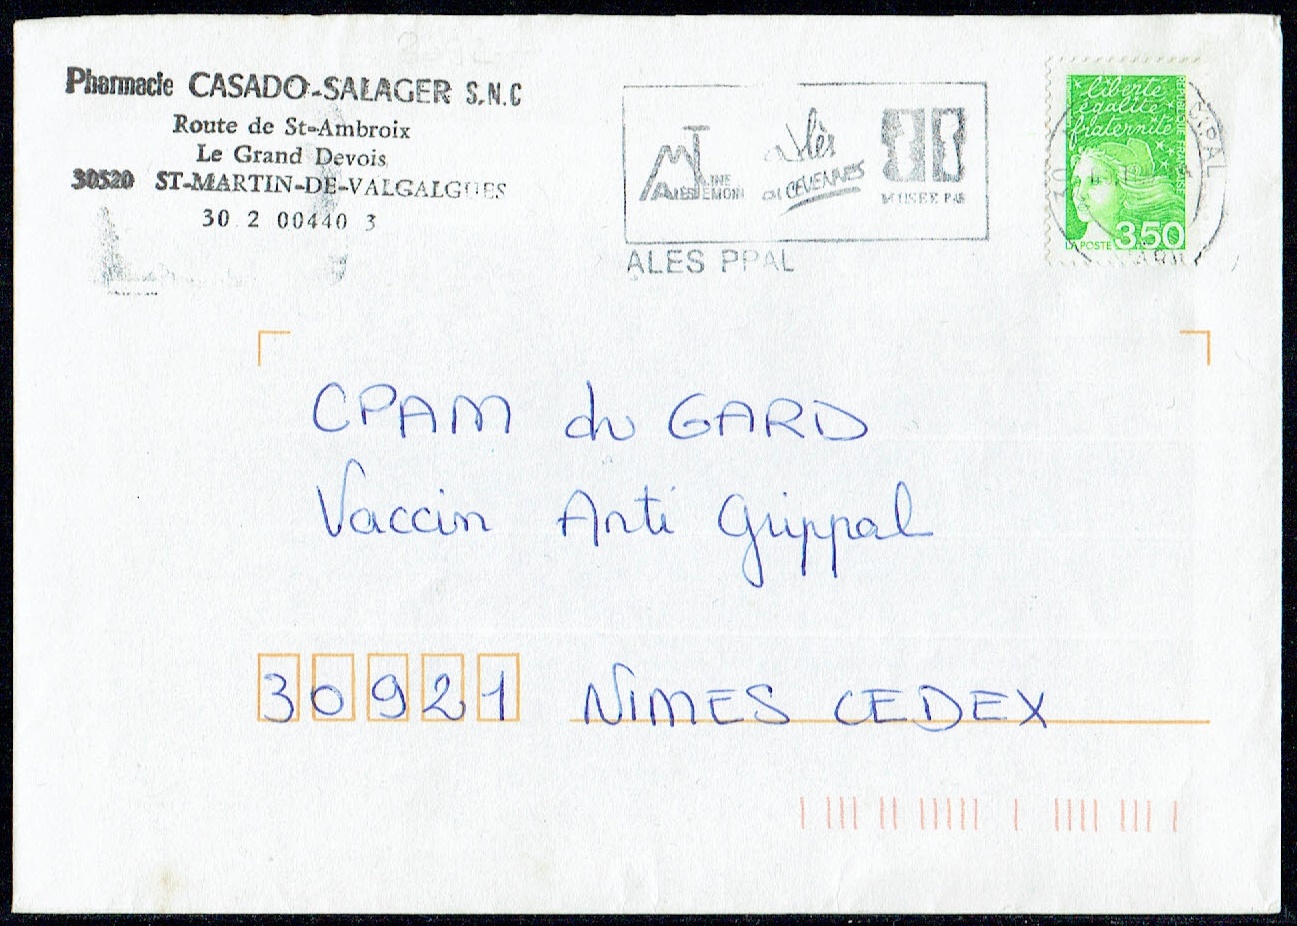 Pharmacie CASADO-SALAGER S.N.C
Route de St-Ambroix
Le Grand Devois
30520 ST-MARTIN-DE-VALGALGUES
30 2 00440 3
MINE
ALÈS TEMOIN
Alès
en CÉVENNES
MUSEE PAB
ALES PPAL
liberté
égalité
fraternité
REPUBLIQUE FRANÇAISE
LA POSTE 3,50
CPAM du GARD
Vaccin Anti Grippal
30921 NIMES CEDEX